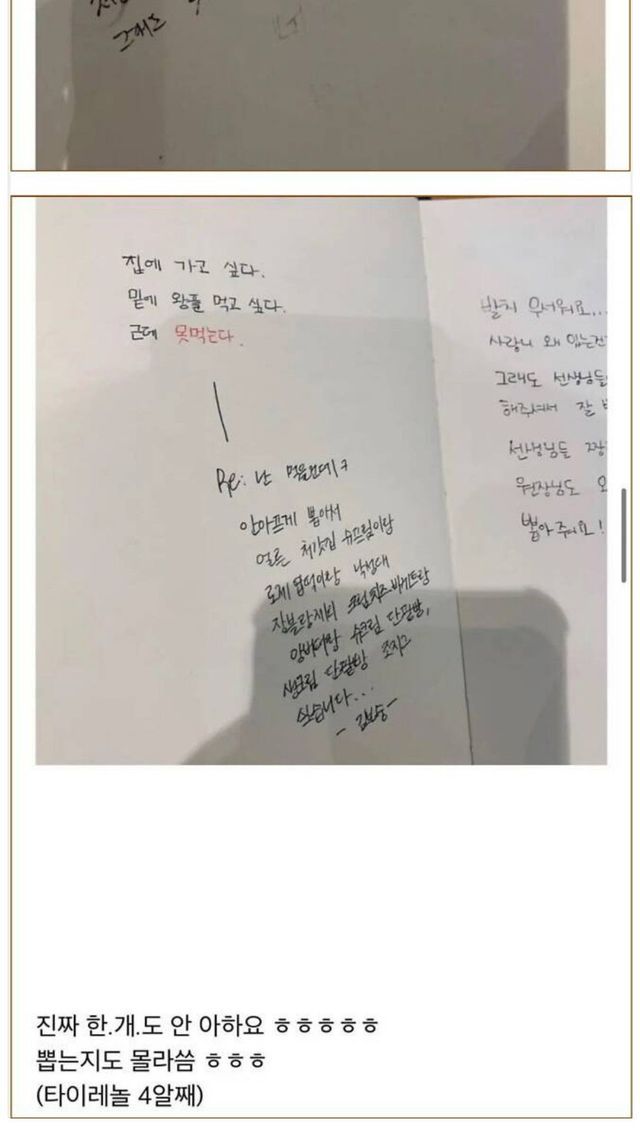 그저도
집에 가고 싶다.
밑에 왕플 먹고 싶다.
근데 못먹는다.
Re: 난 먹을건데ㅋ
안아프게 뽑아서
얼른 처갓집 슈프림이랑
로제엽떡이랑 낙성대
장블랑제리 크림치즈바게트랑
앙버터랑 슈크림 단팥빵,
생크림 단팥빵 조지고
싶습니다...
발치 무서워요...
사랑니 왜 있는건
그래도 선생님들
해주셔서 잘
선생님들 짱
원장님도
뽑아주세요!
진짜 한.개.도 안 아하요 ㅎㅎㅎㅎㅎ
뽑는지도 몰라씀 ㅎㅎㅎ
(타이레놀 4알째)